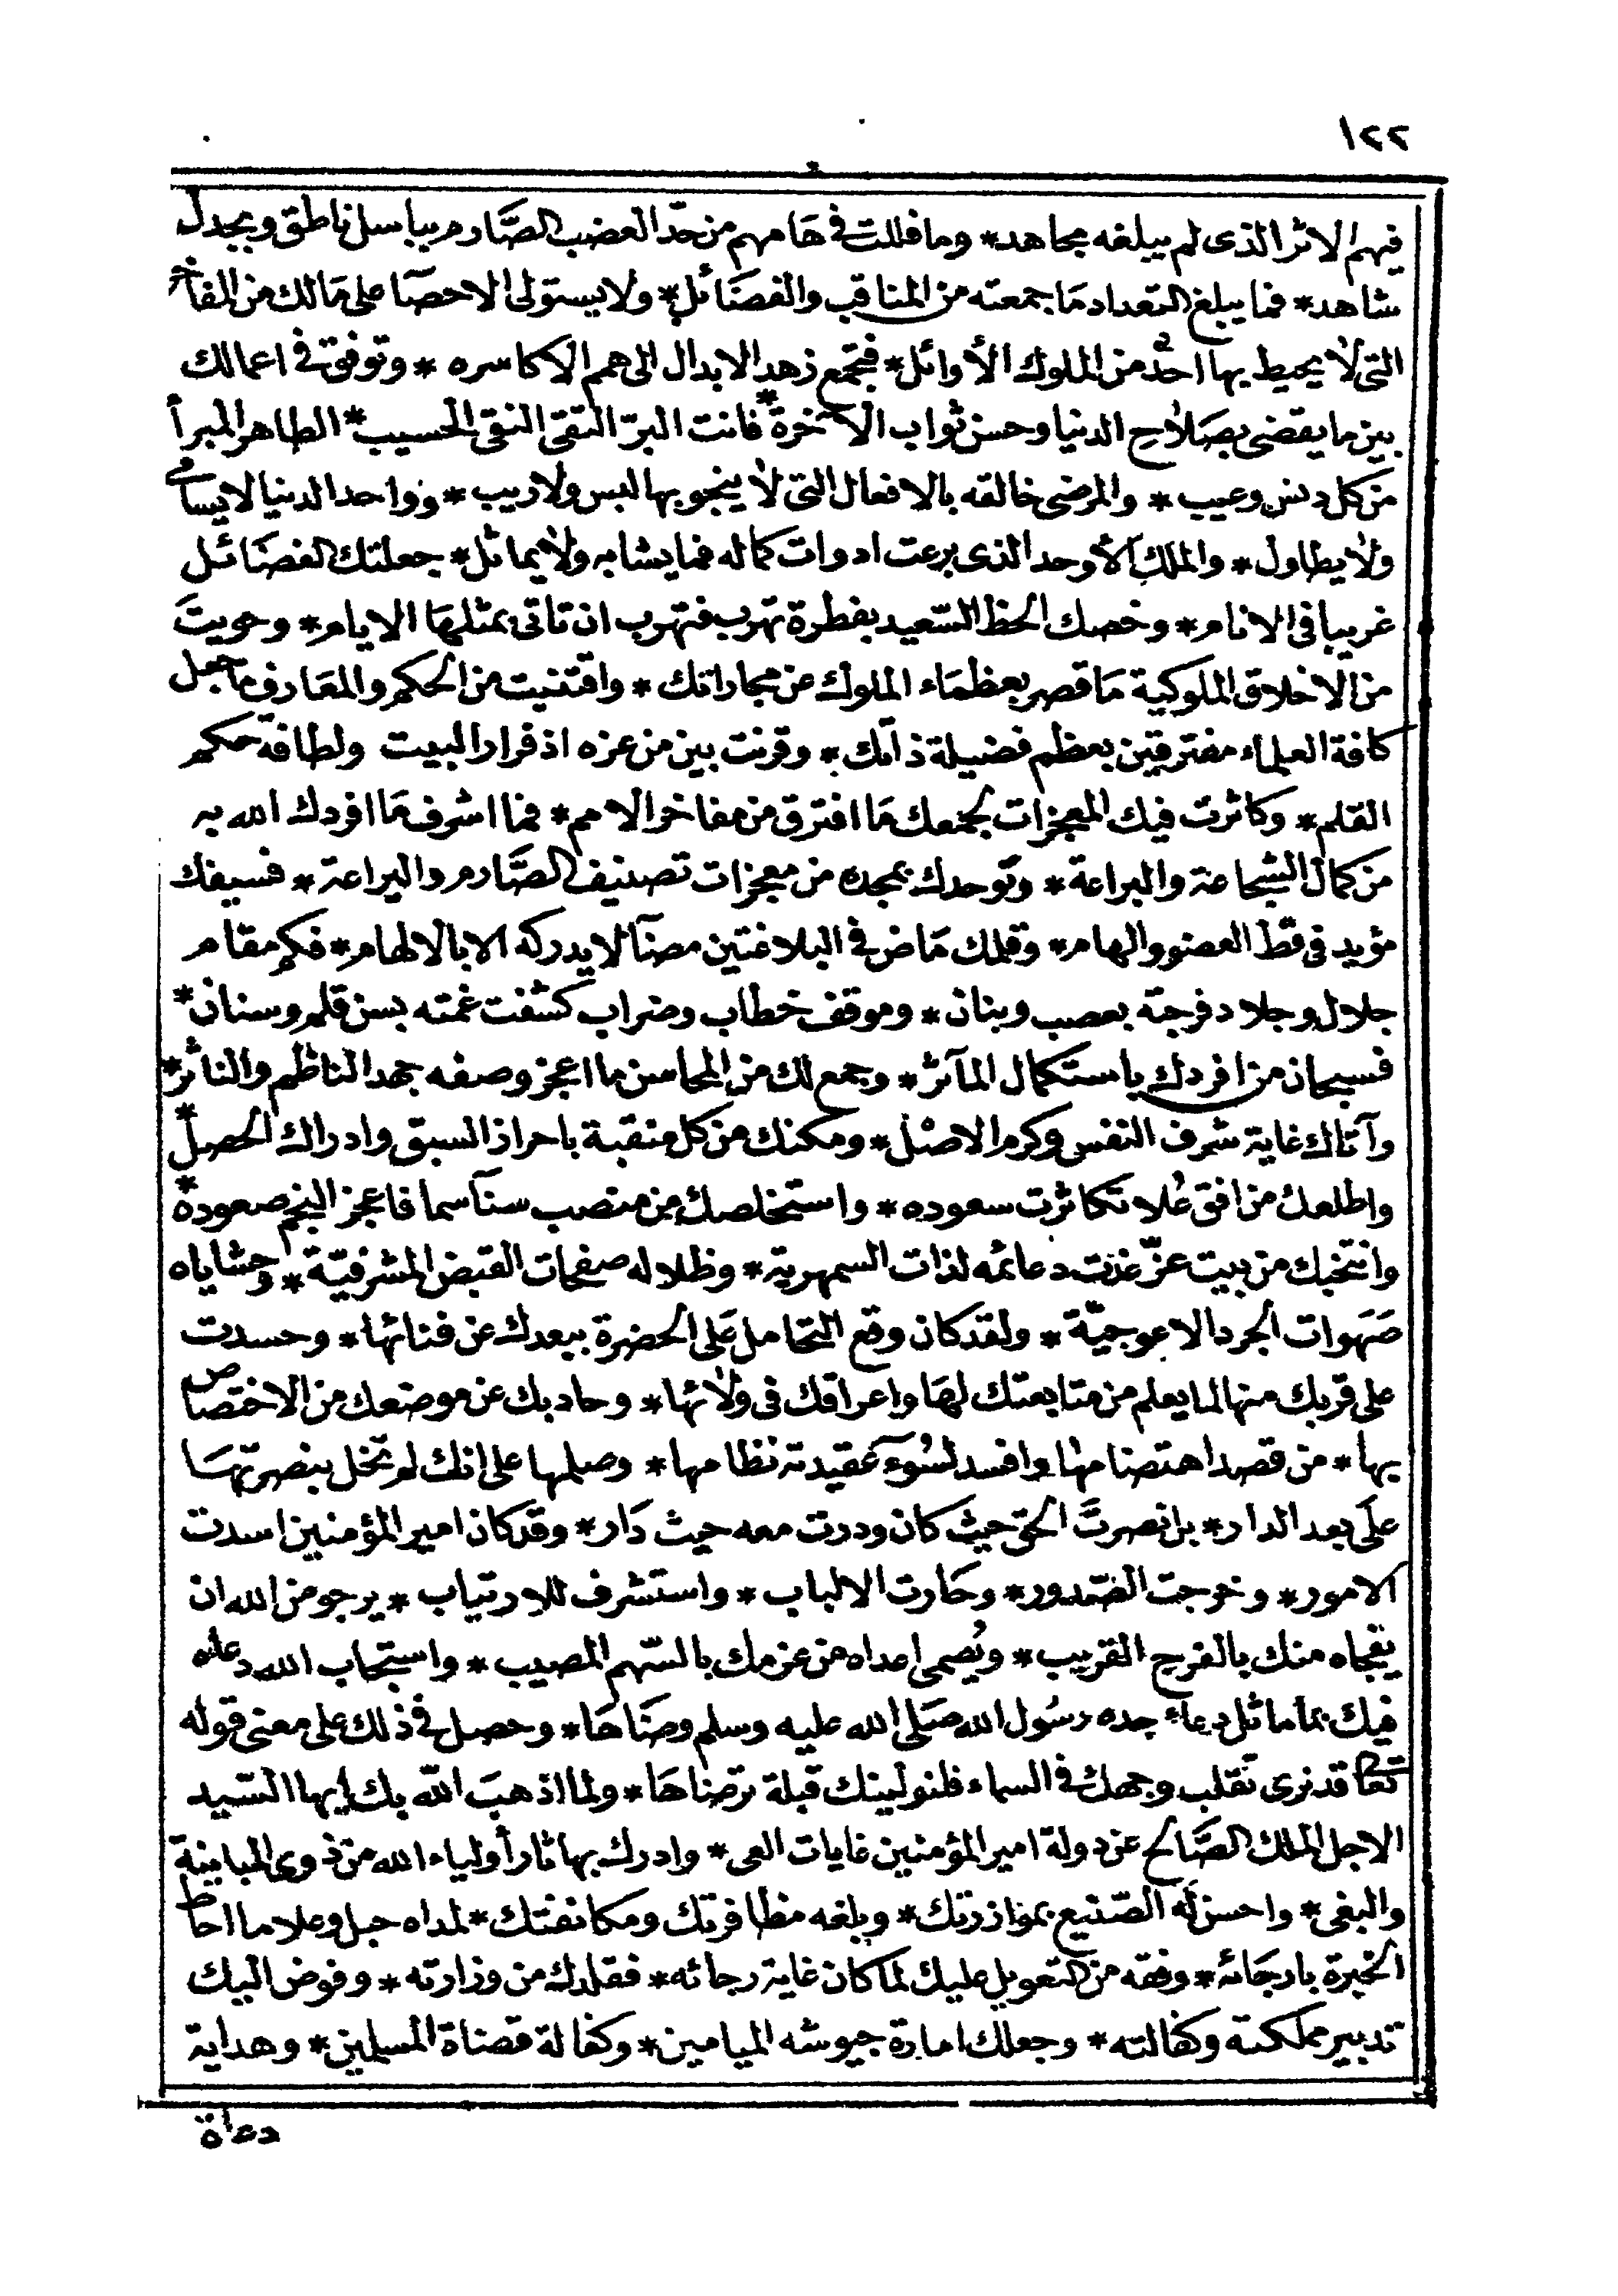 ١٢٢
فيهم الاثر الذى لم يبلغه مجاهد * وما فللت فى هامهم من حدّ العضب الصّارم بباسل ناطق وبجدل
شاهد * فما يبلغ التعداد مَا جمعته من المناقب والفضَائل * ولا يستولى الاحصآ على مَا لك من المفاخر
التى لا يحيط بها احدٌ من الملوك الأوائل * فتجمع زهد الابدال الى همم الاكاسره * وتوفق فى اعمالك
بين ما يقضى بصَلاح الدنيا وحسن ثواب الآخرة * فانت البرّ التقى النقى الحسيب * الطاهر المبرأ
من كل دنس وعيب * والمرضى خالقه بالافعال التى لا ينجو بها لبس ولا ريب * وواحد الدنيا لا يسامى
ولا يطاول * والملك الأوحد الذى برعت ادوات كماله فما يشابه ولا يماثل * جعلتك الفضَائل
غريبا فى الانام * وخصك الحظ السّعيد بفطرة تهرب فتهرب ان تاتى بمثلهَا الايام * وحويتَ
من الاخلاق الملوكية مَا قصر بعظمَاء الملوك عن مجاراتك * واقتنيت من الحكم والمعَارف مَا جعل
كافة العلماء مفترقين بعظم فضيلة ذاتك * وقرنت بين من عزه اذ قرار البيت ولطافة حكم
القلم * وكاثرت فيك المعجزات بجمعك مَا افترق من مفاخر الامم * فما اشرف مَا افردك الله به
من كمال الشجاعة والبراعة * وتوحدك بمجده من معجزات تصنيف الصَّارم واليراعة * فسيفك
مؤيد فى قطّ العضو والهام * وقلمك مَاض فى البلاغتين مضآ لا يدركه الا بالالهام * فكم مقام
جلال وجلاد فرجته بعصب وبنان * وموقف خطاب وضراب كشفت غمته بسن قلم وسنان *
فسبحان من افردك باستكمال المآثر * وجمع لك من المحاسن ما اعجز وصفه جهد الناظم والناثر *
وآتاك غاية شرف النفس وكرم الاصْل * ومكنك من كل منقبة باحراز السبق وادراك الخصل *
واطلعك من افق عُلا تكاثرت سعوده * واستخلصك من منصب سنآ سما فاعجز النجم صعوده *
وانتخبك من بيت عزّ غذت دعائمه لذات السمهرية * وظلاله صفحات القبض المشرفيّة * وحشاياه
صَهوات الجرد الاعوجيّة * ولقد كان وقع التحامل عَلى الحضرة ببعدك عن فنائها * وحسدت
على قربك منها لما يعلم من متابعتك لهَا واعراقك فى ولائها * وحاد بك عن موضعك من الاختصاص
بها * من قصد اهتضامها وافسد لسُوء عقيدته نظامها * وصلها على انك لم تخل بنصرتهَا
علَى بعد الدار * بل نصرتَ الحق حيث كان ودرت معه حيث دَار * وقد كان امير المؤمنين اسدت
الامور * وخرجت الصّدور * وحَارت الالباب * واستشرف للارتياب * يرجو من الله ان
يفجاه منك بالفرج القريب * ويُصمى اعداه من عزمك بالسّهم المصيب * واستجاب الله دعاه
فيك بما ماثل دعاء جده رسُول الله صَلى الله عليه وسلم وضَاهَا * وحصل فى ذلك على معنى قوله
تعَا قد نرى تقلب وجهك فى السماء فلنولينك قبلة ترضاهَا * ولما اذهبَ اللّه بك ايها السّيد
الاجل الملك الصَّالح عن دولة امير المؤمنين غايات العى * وادرك بها ثار أولياء الله من ذوى المباينة
والبغى * واحسن لَه الصّنيع بموازرتك * وبلغه مظافرتك ومكانفتك * لمداه جبل وعلا ما احاط
الخيرة بارجَائه * ووفقه من التعويل عليك لما كان غاية رجائه * فقلدك من وزارته * وفوض اليك
تدبير مملكته وكفالته * وجعلك امارة جيوشه الميامين * وكفالة قضاة المسلمين * وهداية
دعاة